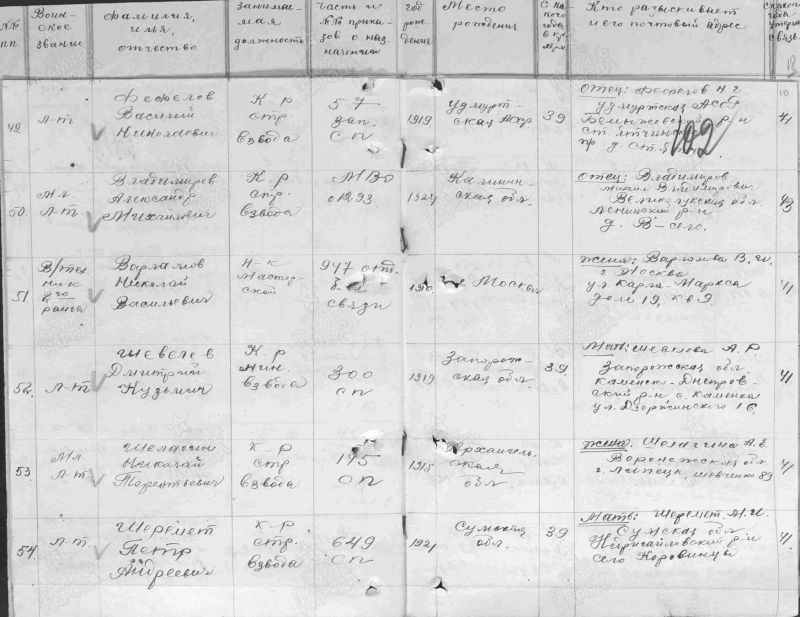 №№ пп
Воинское звание
Фамилия, имя, отчество
занимаемая должность
часть и №№ приказов о назначении
год рождения
Место рождения
Кто разыскивает и его почтовый адрес
49.
Л-т
Фефелов
Василий
Николаевич
К-р
стр.
взвода
57
зап.
сп
1919
Удмурт-
ская АССР
39
Отец: Фефелов Н. Г.
Удмуртская АССР
р-н
41
50.
Мл.
Л-т.
Владимиров
Александр
Михайлович
К-р
стр.
взвода
МВО
01293
1924
Калинин-
ская обл.
Отец: Владимиров
Великолукская обл.
Ленинский р-н
д. В-село.
43
51.
В/тех.
ник
2го
ранга
Варламов
Николай
Васильевич
Н-к
Мастер-
ской
947 отд.
б-н
связи
1910
г. Москва
жена: Варламова В. И.
г. Москва
ул. Карла-Маркса
дом 19, кв 9
41
52.
Л-т
Шевелев
Дмитрий
Кузьмич
К-р
мин.
взвода
300
сп
1919
Запорож-
ская обл.
39
Мать: Шевелева А. Р
Запорожская обл.
Каменско-Днепров-
ский р-н с. Каменка
ул. Дзержинского 16.
41
53
Мл.
Л-т.
Шелагин
Николай
Терентьевич
К-р
стр
взвода
145
сп
1915
Архангель-
ская
обл.
жена. Шелагина А. Е.
Воронежская обл
г. Липецк, Шевченко 89
41
54.
Л-т.
Шеремет
Петр
Андреевич
К-р
стр.
взвода
649
сп
1921
Сумская
обл.
39
Мать: Шеремет, М. И.
Сумская обл.
Недригайловский р-н
село Коровинцы
41